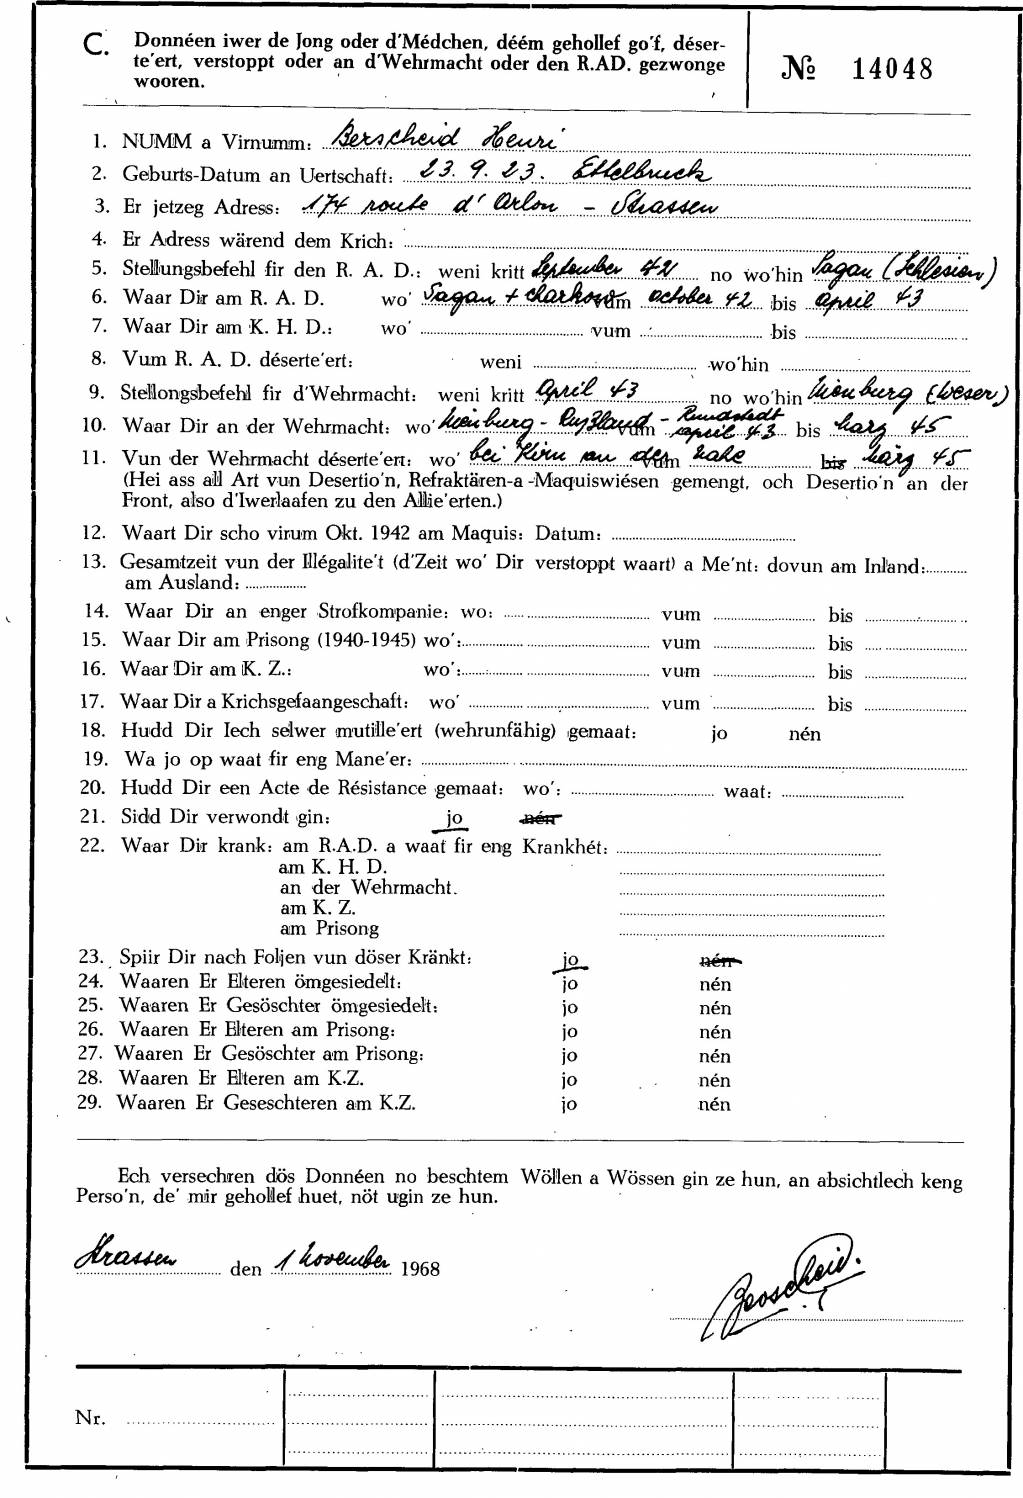 C. Donnéen iwer de Jong oder d'Médchen, déém gehollef go'f, déser-
te'ert, verstoppt oder an d'Wehrmacht oder den R.AD. gezwonge
wooren.
№ 14048
1. NUMM a Virnumm: Berscheid Henri
2. Geburts-Datum an Uertschaft: 23. 9. 23. Ettelbruck
3. Er jetzeg Adress: 174 route d'Arlon - Strassen
4. Er Adress wärend dem Krich:
5. Stellungsbefehl fir den R. A. D.: weni kritt September 42 no wo'hin Sagan (Schlesien)
6. Waar Dir am R. A. D. wo' Sagan + Charkow vum october 42 bis april 43
7. Waar Dir am K. H. D.: wo' vum bis
8. Vum R. A. D. déserte'ert: weni wo'hin
9. Stellongsbefehl fir d'Wehrmacht: weni kritt April 43 no wo'hin Nienburg (Weser)
10. Waar Dir an der Wehrmacht: wo' Nienburg - Rußland - Rundstedt vum april 43 bis März 45
11. Vun der Wehrmacht déserte'ert: wo' bei Kirn an der Nahe vum bis März 45
(Hei ass all Art vun Desertio'n, Refraktären-a -Maquiswiésen gemengt, och Desertio'n an der
Front, also d'Iwerlaafen zu den Allie'erten.)
12. Waart Dir scho virum Okt. 1942 am Maquis: Datum:
13. Gesamtzeit vun der Illégalite't (d'Zeit wo' Dir verstoppt waart) a Me'nt: dovun am Inland:
am Ausland:
14. Waar Dir an enger Strofkompanie: wo: vum bis
15. Waar Dir am Prisong (1940-1945) wo': vum bis
16. Waar Dir am K. Z.: wo': vum bis
17. Waar Dir a Krichsgefaangeschaft: wo' vum bis
18. Hudd Dir Iech selwer mutille'ert (wehrunfähig) gemaat: jo nén
19. Wa jo op waat fir eng Mane'er:
20. Hudd Dir een Acte de Résistance gemaat: wo': waat:
21. Sidd Dir verwondt gin: jo nén
22. Waar Dir krank: am R.A.D. a waat fir eng Krankhét:
am K. H. D.
an der Wehrmacht.
am K. Z.
am Prisong
23. Spiir Dir nach Foljen vun döser Kränkt: jo nén
24. Waaren Er Elteren ömgesiedelt: jo nén
25. Waaren Er Gesöschter ömgesiedelt: jo nén
26. Waaren Er Elteren am Prisong: jo nén
27. Waaren Er Gesöschter am Prisong: jo nén
28. Waaren Er Elteren am K.Z. jo nén
29. Waaren Er Geseschteren am K.Z. jo nén
Ech versechren dös Donnéen no beschtem Wöllen a Wössen gin ze hun, an absichtlech keng
Perso'n, de' mir gehollef huet, nöt ugin ze hun.
Strassen den 1 November 1968
Berscheid.
Nr.